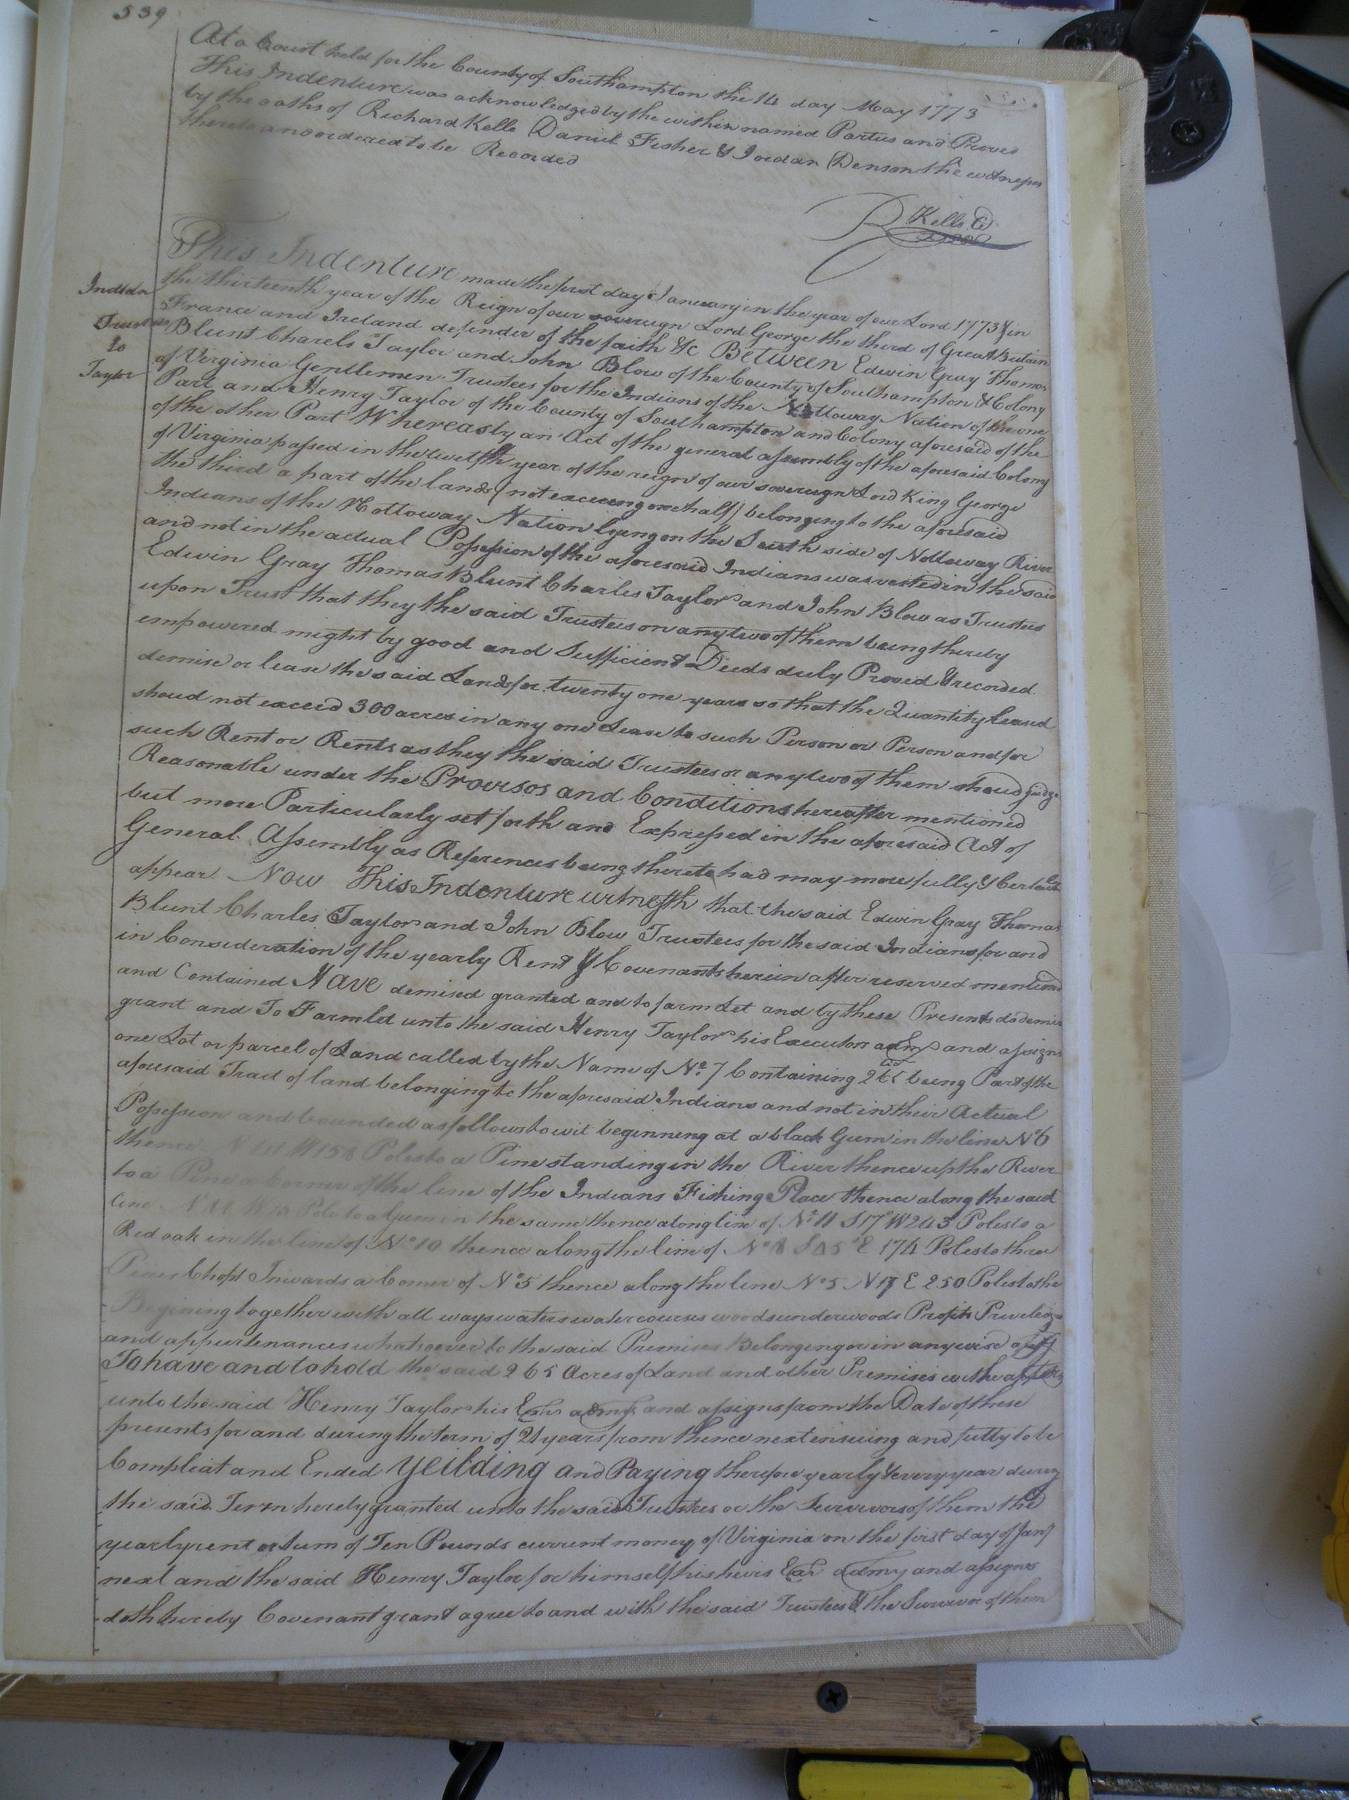 539
At a Court held for the County of Southampton the 14 day May 1773
This Indenture was acknowledged by the within named Parties and Proved
by the oaths of Richard Kello Daniel Fisher & Jordan Denson the witnesses
thereto and ordered to be Recorded
R Kello
Indian
Trustees
to
Taylor
This Indenture made the first day January in the year of our Lord 1773 & in
the thirteenth year of the Reign of our sovereign Lord George the third of Great Britain
France and Ireland defender of the faith &c Between Edwin Gray Thomas
Blunt Charels Taylor and John Blow of the County of Southampton & Colony
of Virginia Gentlemen Trustees for the Indians of the Nottoway Nation of the one
Part and Henry Taylor of the County of Southampton and Colony aforesaid of the
of the other Part Whereas by an Act of the general assembly of the aforesaid Colony
of Virginia passed in the twelfth year of the reign of our sovereign Lord King George
the third a part of the land (not exceeding one half) belonging to the aforesaid
Indians of the Nottoway Nation lying on the South side of Nottoway River
and not in the actual Possession of the aforesaid Indians was vested in the said
Edwin Gray Thomas Blunt Charles Taylor and John Blow as Trustees
upon Trust that they the said Trustees or any two of them being thereby
empowered might by good and Sufficient Deeds duly Proved & recorded
demise or lease the said Lands for twenty one years so that the Quantity leased
shoud not exceed 300 acres in any one Lease to such Person or Person and for
such Rent or Rents as they the said Trustees or any two of them shoud judge
Reasonable under the Provisos and Conditions hereafter mentioned
but more Particularly set forth and Expressed in the aforesaid Act of
General Assembly as References being thereto had may more fully &
appear Now This Indenture witnesseth that the said Edwin Gray Thomas
Blunt Charles Taylor and John Blow Trustees for the said Indians for and
in Consideration of the yearly Rent & Covenants herein after reserved mentiond
and Contained Have demised granted and to farm Let and by these Presents do demise
grant and To Farm let unto the said Henry Taylor his Executors and assigns
one Lot or parcel of Land called by the Name of No. 7 Containing 265 being Part of the
aforesaid Tract of land belonging to the aforesaid Indians and not in their Actual
Possession and bounded as follows to wit beginning at a black Gum in the line No 6
thence N W 158 Poles to a Pine standing in the River thence up the River
to a Pine a Corner of the line of the Indians Fishing Place thence along the said
line N W Pole to a Gum in the same thence along line of No 11 S 17 W 243 Poles to a
Red oak in the line of No 10 thence along the line of No 8 E 174 Poles to three
Pines Chopt Inwards a Corner of No 5 thence along the line No 5 N 17 E 250 Poles to the
Begining together with all ways waters water courses woods underwoods Profits Priveleges
and appurtenances whatsoever to the said Premises Belonging or in any wise
To have and to hold the said 265 Acres of Land and other Premises with the
unto the said Henry Taylor his Exrs and assigns from the Date of these
presents for and during the term of 21 years from thence next ensuing and fully to be
Compleat and Ended Yeilding and Paying therefor yearly & every year during
the said Term hereby granted unto the said Trustees or the Survivors of them the
yearly rent or Sum of Ten Pounds current money of Virginia on the first day of Jany
next and the said Henry Taylor for himself his heirs and assigns
doth hereby Covenant grant agree to and with the said Trustees & the Survivor of them